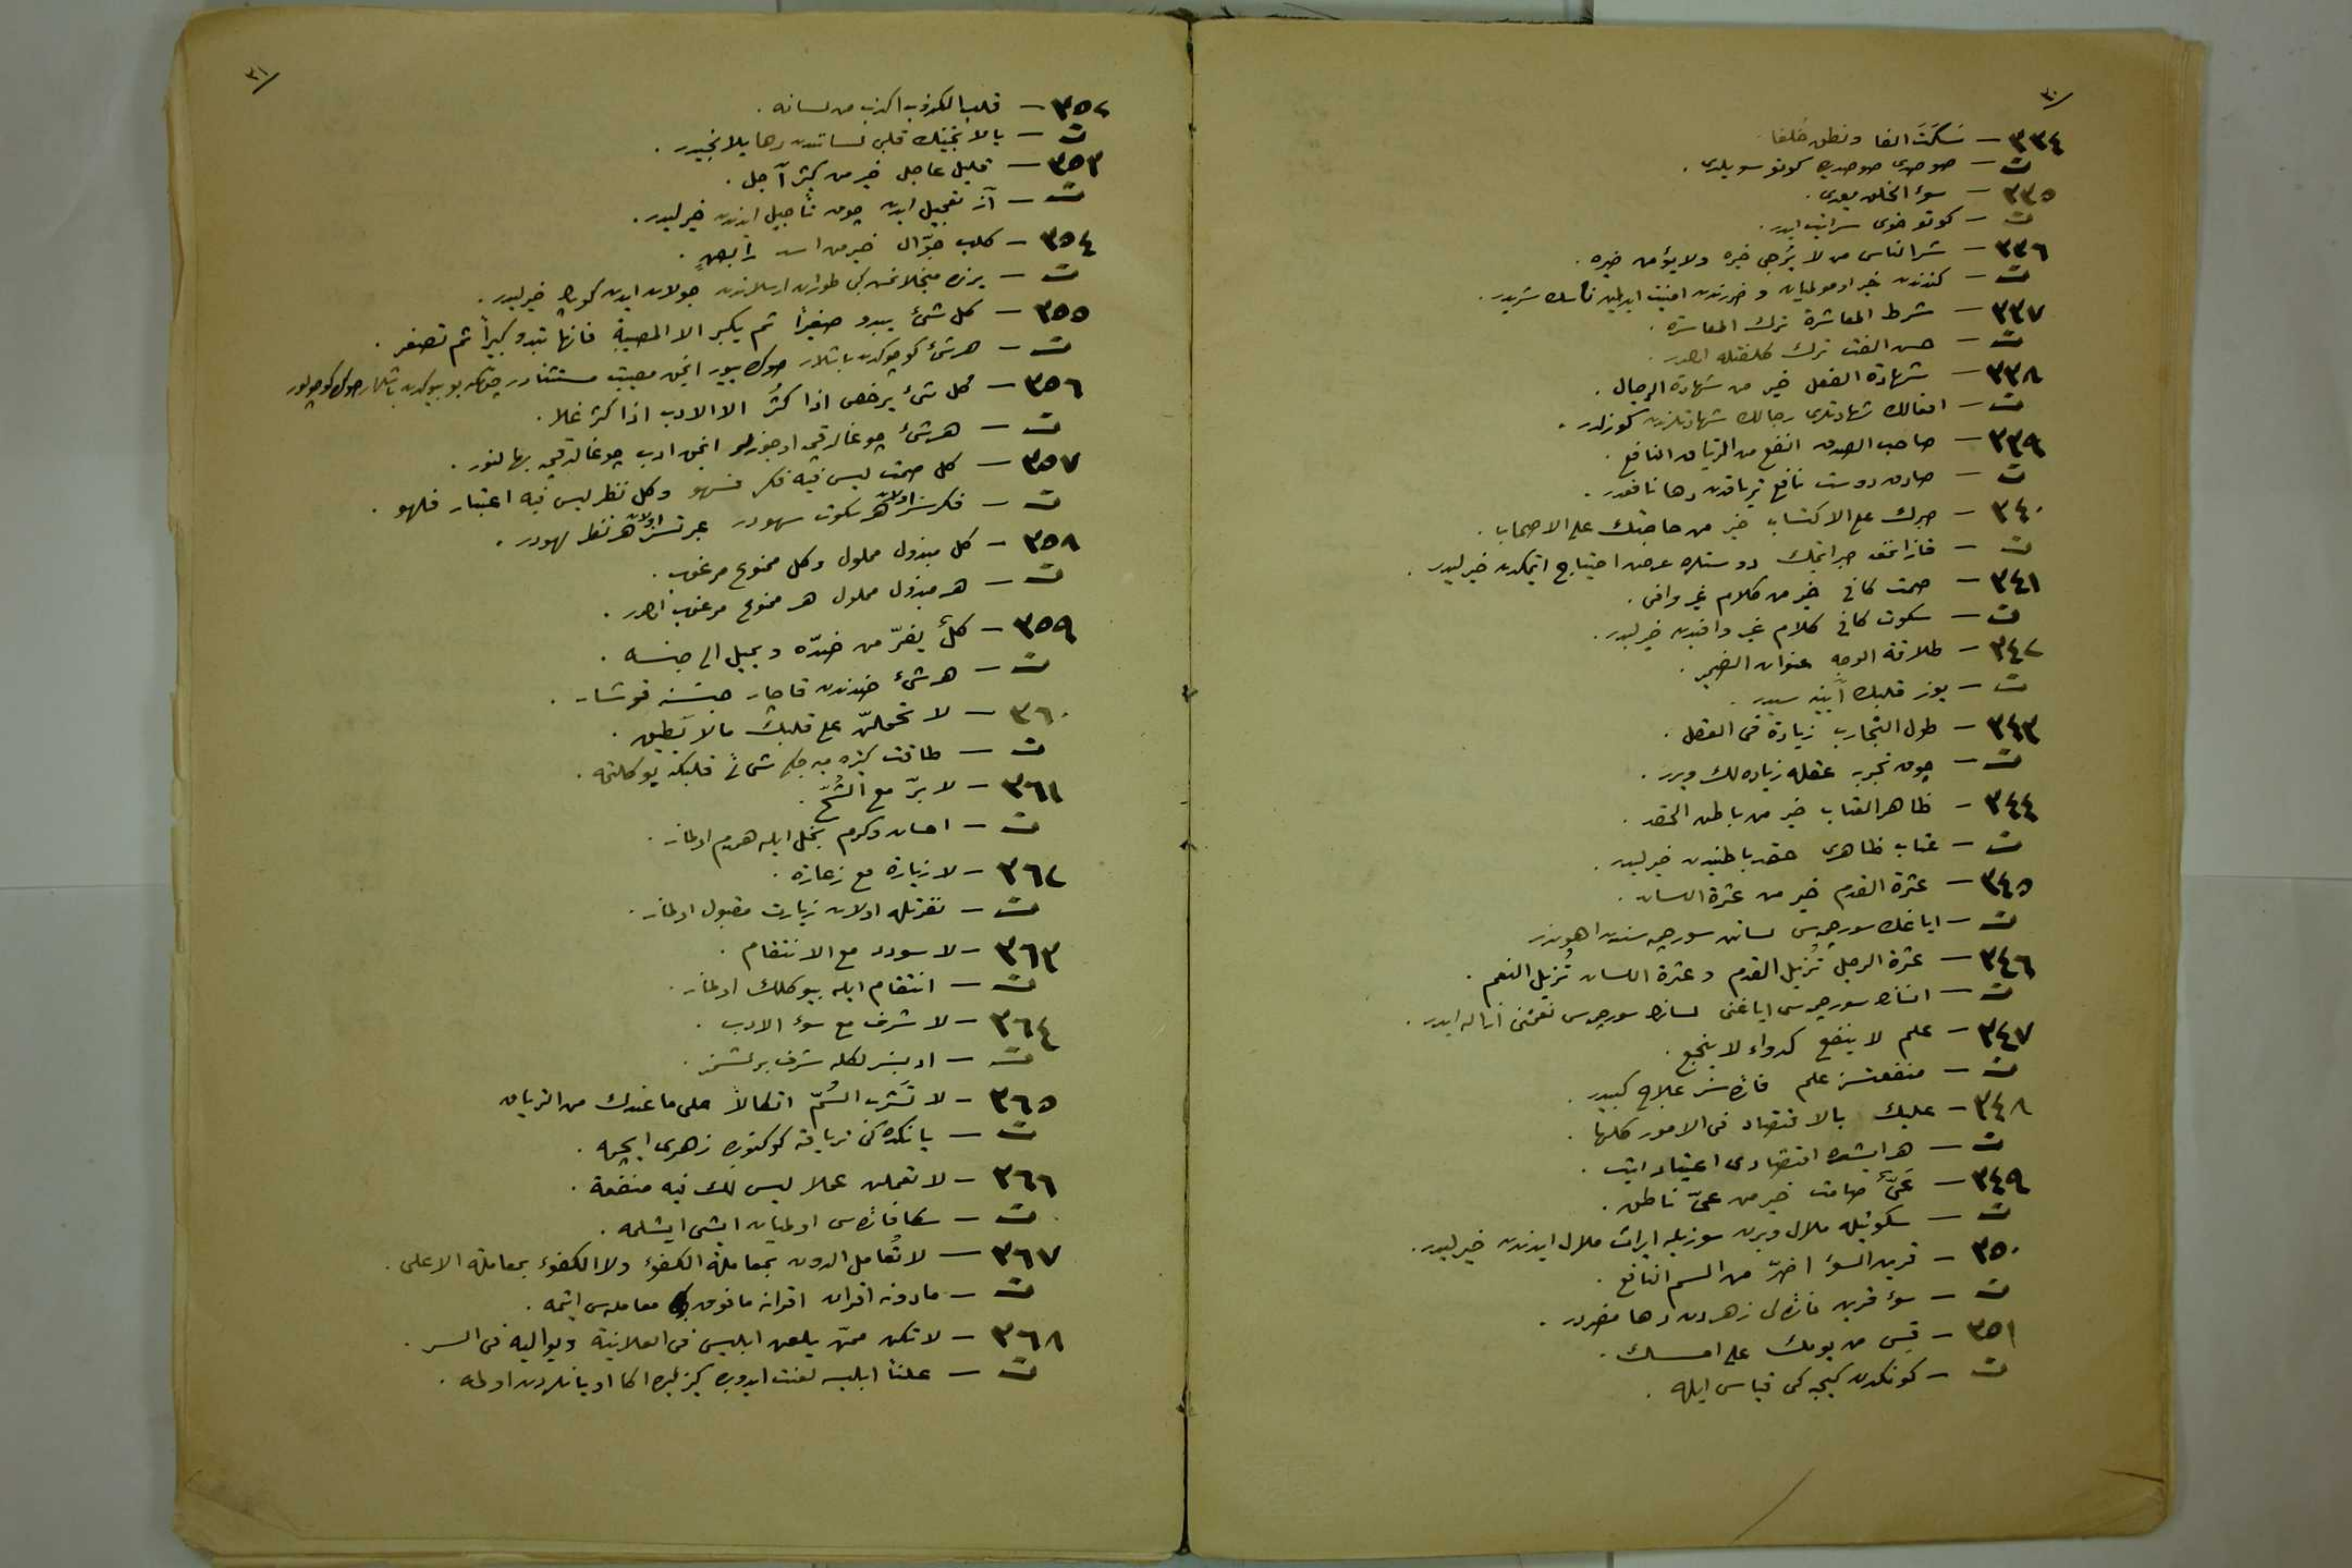 ٣٠
٣٣٤ – سَكَتَ الفا ونطق خلفا
ت – صوصدى صوصدى كوتو سويلدى .
٣٣٥ – سوء الخلق يعدى .
ت – كوتو خوى سرايت ايدر .
٣٣٦ – شر الناس من لا يُرجى خيره ولا يؤمن
ت – كندندن خير اومولميان و ضررندن امنيت ايدلمين ناسك شريدر .
٣٣٧ – شرط المعاشرة ترك المعاسرة .
ت – حسن الفت ترك كلفتله اولور .
٣٣٨ – شهادة الفعل خير من شهادة الرجال .
ت – افعالك شهادتلرى رجالك شهادتلرندن كوزلدر .
٣٣٩ – صاحب الصدق انفع من الترياق النافع .
ت – صادق دوست نافع ترياقدن دها نافعدر .
٣٤٠ – صبرك على الاكتساب خير من حاجتك على الاصحاب .
ت – قازانمغه صبر ايتمك دوستلره عرض احتياج ايتمكدن خيرليدر .
٣٤١ – صمت كافى خير من كلام غير وافى .
ت – سكوت كافى كلام غير وافيدن خيرليدر .
٣٤٢ – طلاقة الوجه عنوان الضمير .
ت – يوز قلبك آيينه سيدر .
٣٤٣ – طول التجارب زيادة فى العقل .
ت – چوق تجربه عقله زياده لك ويرر .
٣٤٤ – ظاهر العتاب خير من باطن الحقد .
ت – عتاب ظاهرى حقد باطنيدن خيرليدر .
٣٤٥ – عثرة القدم خير من عثرة اللسان .
ت – اياغك سورچمسى لسانك سورچمه سندن اهوندر
٣٤٦ – عثرة الرجل تُزيل القدم و عثرة اللسان تُزيل النعم .
ت – انسانك سورچمسى اياغنى لسانك سورچمسى نعمتنى ازاله ايدر .
٣٤٧ – علم لا ينفع كدواء لا ينجع .
ت – منفعتسز علم فائده سز علاج كبيدر .
٣٤٨ – عليك بالاقتصاد فى الامور كلها .
ت – هر ايشده اقتصادى اعتياد ايت .
٣٤٩ – عَىٌّ صامت خير من عىّ ناطق .
ت – سكوتيله ملال ويرن سوزيله ايراث ملال ايدندن خيرليدر .
٣٥٠ – قرين السوء اضرّ من السم الناقع .
ت – سوء قرين قاتل زهردن دها مضردر .
٣٥١ – قِس من يومك على امسك .
ت – كونكدن كيجه كى قياس ايله .
٣١
٣٥٢ – قلب الكذوب اكذب من لسانه .
ت – يالانجينك قلبى لسانندن دها يالانجيدر .
٣٥٣ – قليل عاجل خير من كثير آجل .
ت – آز تعجيل ايدن چوق تأجيل ايدندن خيرليدر .
٣٥٤ – كلب جوّال خير من اسد رابض .
ت – يرنده طوران ارسلاندن جولان ايدن كوپك خيرليدر .
٣٥٥ – كل شئ يبدو صغيراً ثم يكبر الا المصيبة فانها تبدو كبيراً ثم تصغر .
ت – هر شئ كوچوكدن باشلار صوكره بيور انجق مصيبت مستثنادر چونكه بو بيوكدن باشلار صوكره كوچولور
٣٥٦ – كل شئ يرخص اذا كثُر الا الادب اذا كثر غلا .
ت – هر شئ چوغالدقجه اوجوزلر انجق ادب چوغالدقجه بهالنور .
٣٥٧ – كل صمت ليس فيه فكر فسهو وكل نظر ليس فيه اعتبار فلهو .
ت – فكرسز اولان هر سكوت سهودر عبرتسز اولان هر نظر لهودر .
٣٥٨ – كل مبذول مملول وكل ممنوع مرغوب .
ت – هر مبذول مملول هر ممنوع مرغوب اولور .
٣٥٩ – كلٌ يفرّ من ضدّه ويميل الى جنسه .
ت – هر شئ ضدندن قاچار جنسنه قوشار .
٣٦٠ – لا تحملنّ على قلبك مالا يَطيق .
ت – طاقت كتيره ميه جكى شيئى قلبكه يوكلتمه .
٣٦١ – لا برّ مع الشُحّ .
ت – احسان وكرم بخل ايله همدم اولماز .
٣٦٢ – لا زيارة مع زعارة .
ت – نفرتله اولان زيارت مقبول اولماز .
٣٦٣ – لا سودد مع الانتقام .
ت – انتقام ايله بيوكلك اولماز .
٣٦٤ – لا شرف مع سوء الادب .
ت – ادبسزلكله شرف برلشمز .
٣٦٥ – لا تَشرب السُمّ اتكالاً على ما عندك من الترياق
ت – يانكده كى ترياقه كوكنوب زهرى ايچمه .
٣٦٦ – لا تعملن عملا ليس لك فيه منفعة .
ت – سكا فائده سى اولميان ايشى ايشلمه .
٣٦٧ – لا تُعامل الدون بمعاملة الكفوء ولا الكفوء بمعاملة الاعلى .
ت – مادونه اقران اقرانه مافوق معامله سى ايتمه .
٣٦٨ – لا تكن ممن يلعن ابليس فى العلانية ويواليه فى السر .
ت – علناً ابليسه لعنت ايدوب كيزليده اكا اويانلردن اولمه .